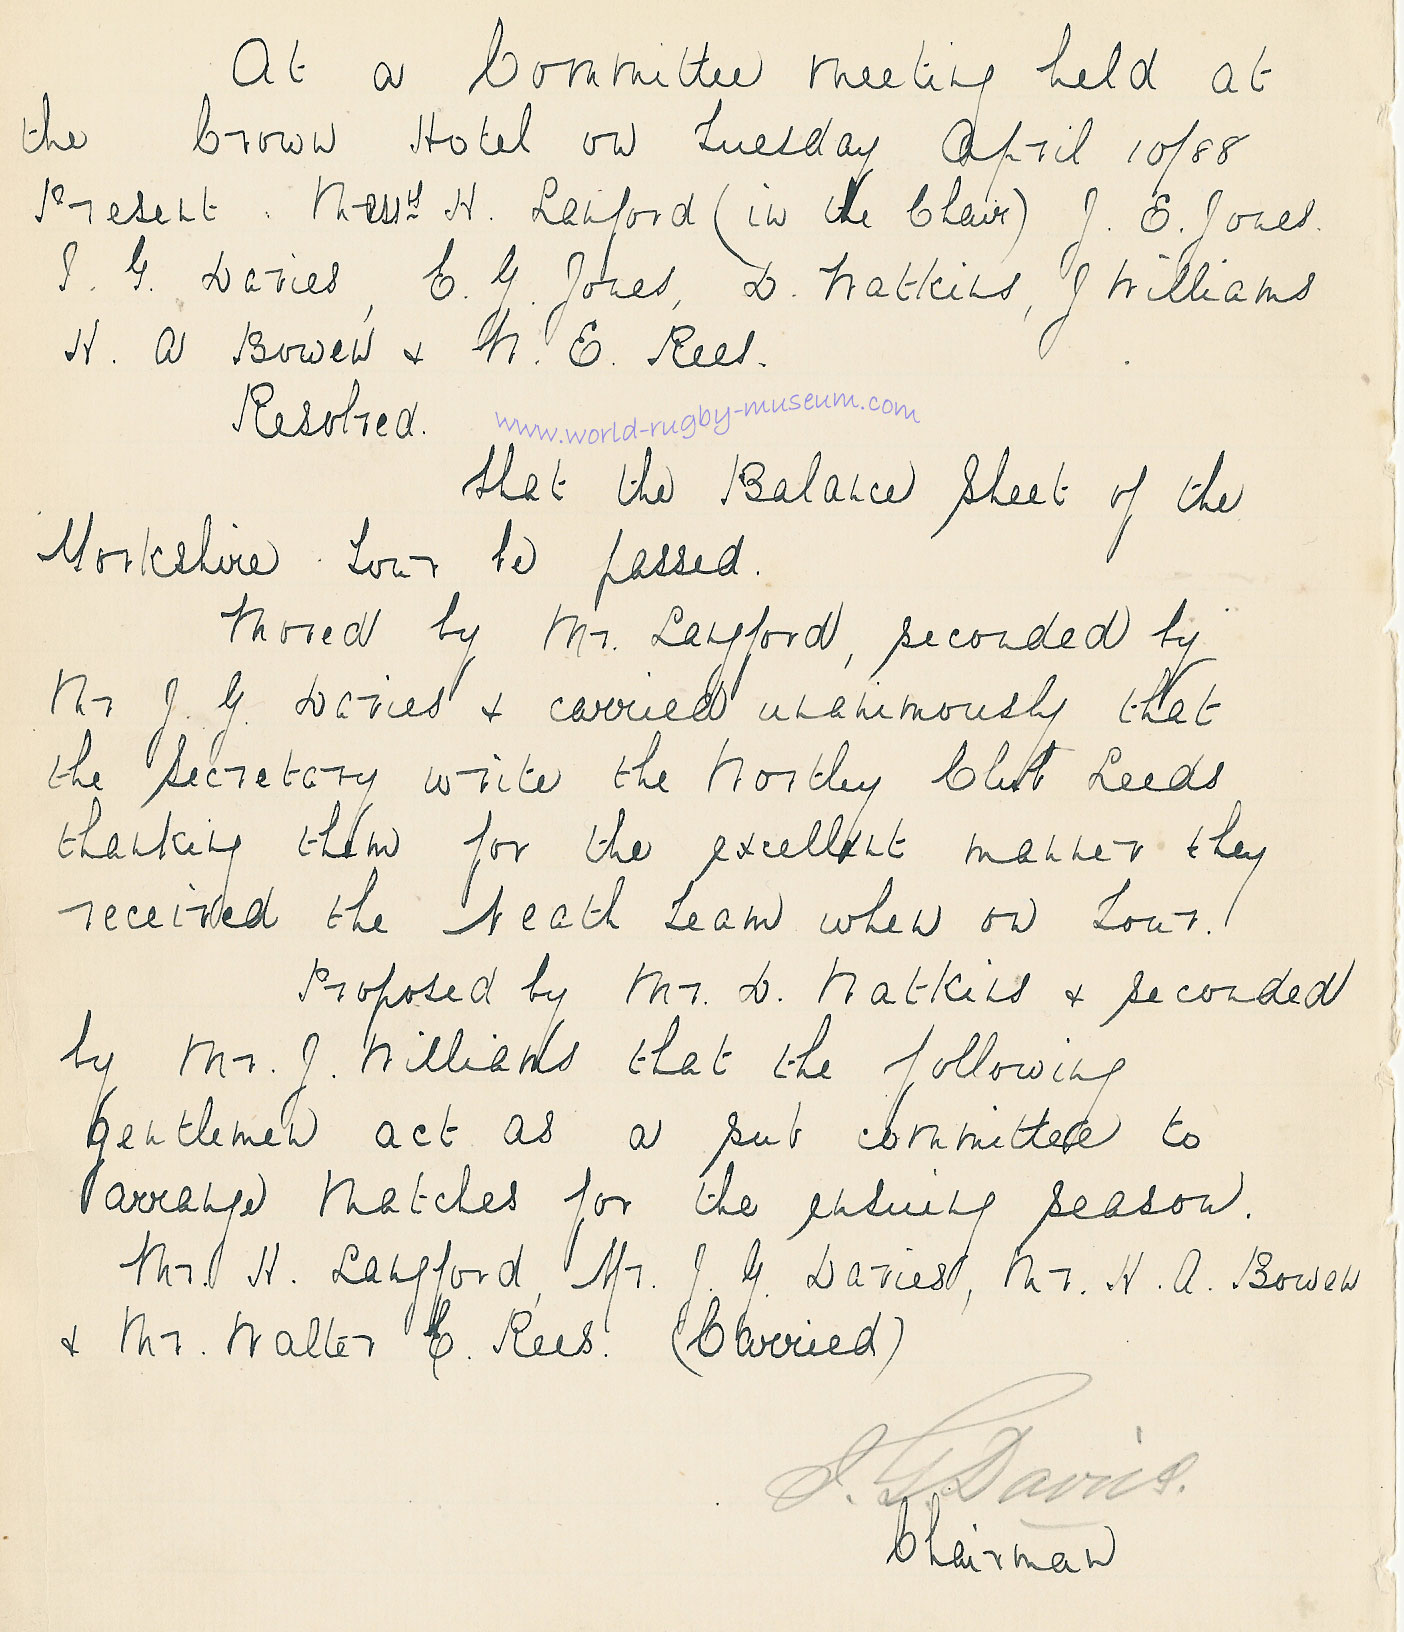 At a Committee meeting held at
the Crown Hotel on Tuesday April 10/88
Present. Messrs H. Lanford (in the Chair) J. E. Jones.
J. G. Davies, C. G. Jones, D. Watkins, J Williams
H. A Bowen & W. E. Rees.
Resolved.
www.world-rugby-museum.com
that the Balance Sheet of the
Yorkshire Tour be passed.
Moved by Mr. Langford, seconded by
Mr J. G. Davies & carried unanimously that
the Secretary write the Wortley Club Leeds
thanking them for the excellent manner they
received the Neath team when on Tour.
Proposed by Mr. D. Watkins & seconded
by Mr. J. Williams that the following
gentlemen act as a sub committee to
arrange Matches for the ensuing season.
Mr. H. Langford, Mr. J. G. Davies, Mr. H. A. Bowen
& Mr. Walter E. Rees. (Carried)
J. G. Davies.
Chairman